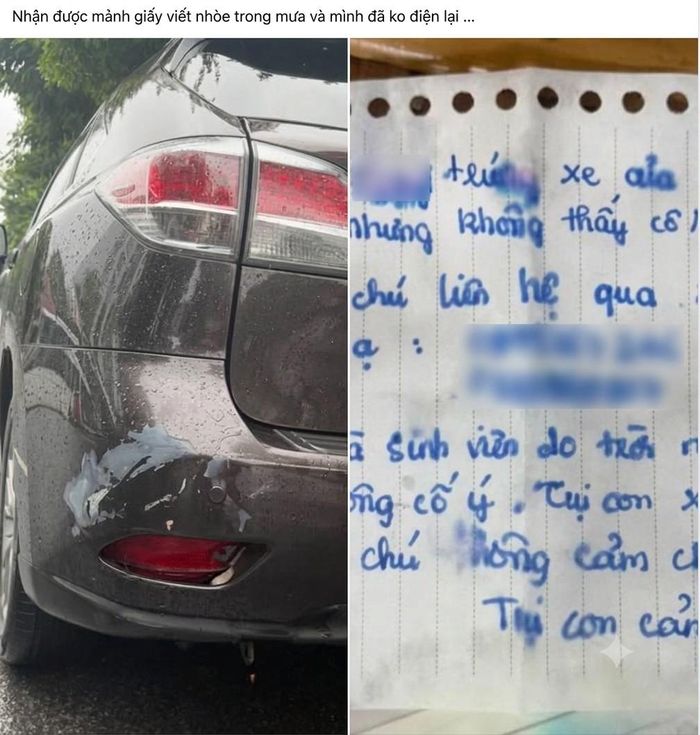 Nhận được mảnh giấy viết nhòe trong mưa và mình đã ko điện lại ...
xe của
nhưng không thấy cô
chú liên hệ qua
ạ :
sinh viên do trời
cố ý. Tụi con
chú thông cảm
Tụi con cảm